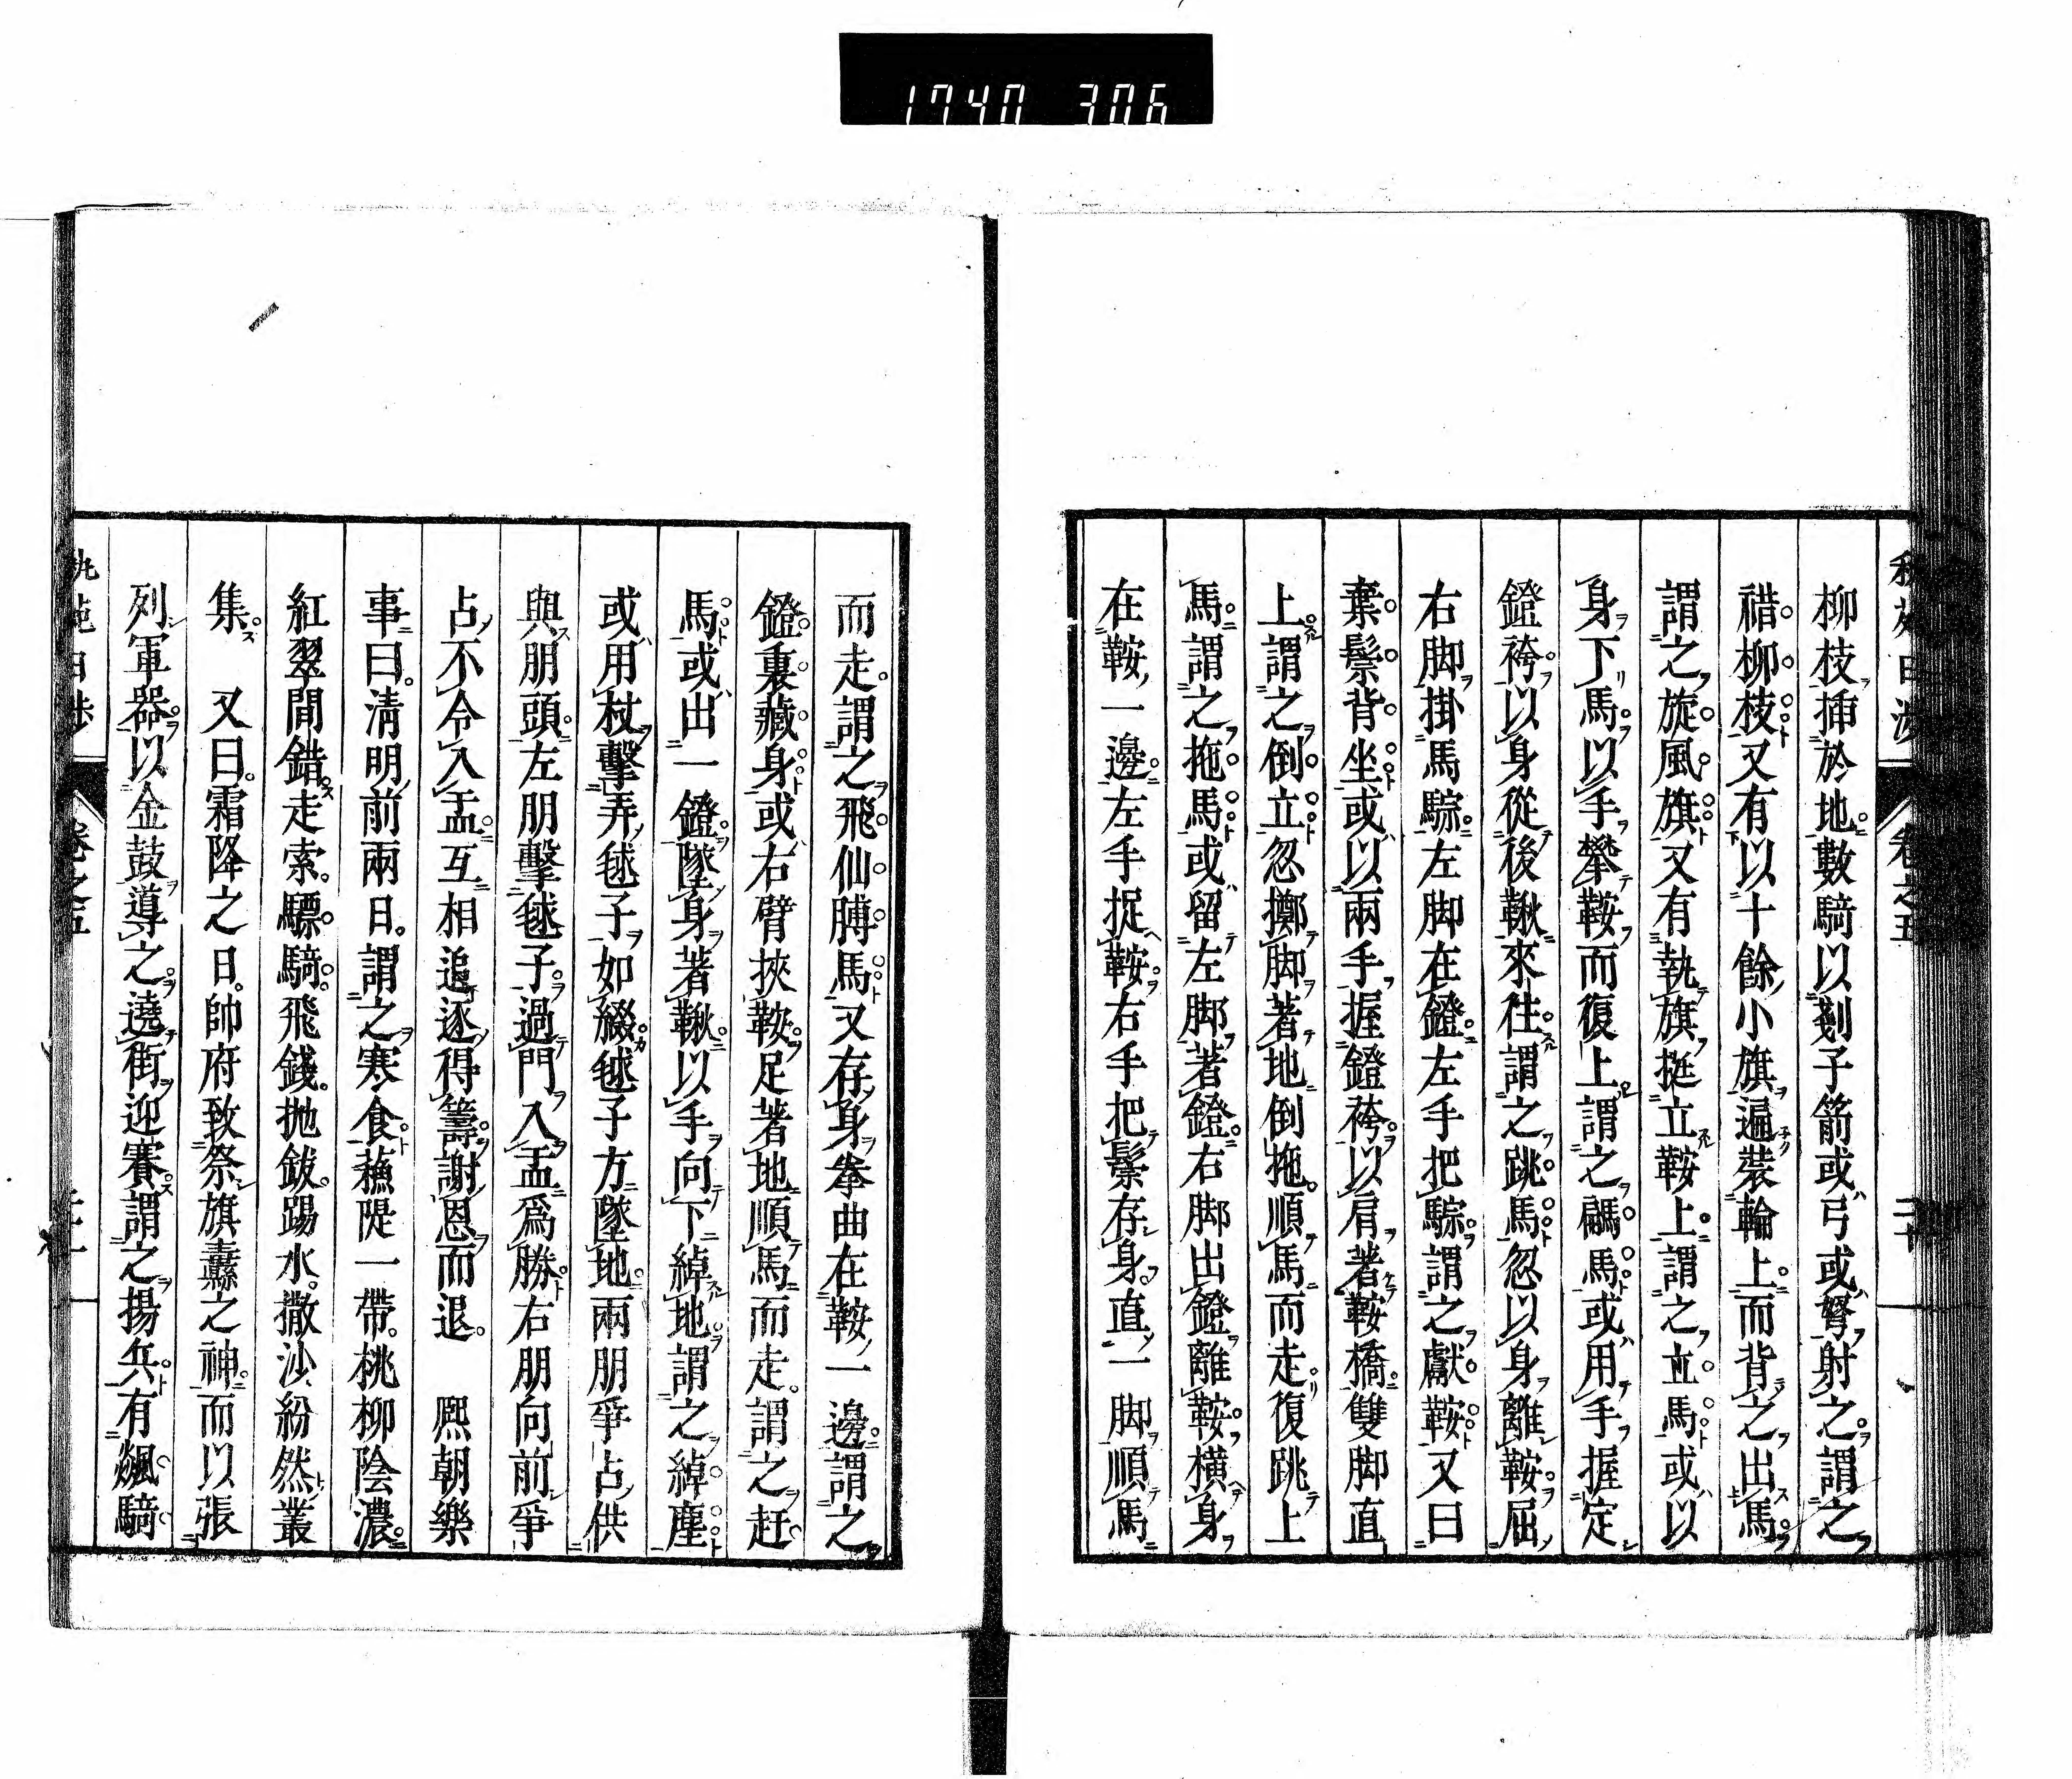 1740 306
柳枝插於地數騎以剗子箭或弓或弩射之謂之
䄍柳枝又有以十餘小旗遍裝輪上而背之出馬
謂之旋風旗又有執旗挺立鞍上謂之立馬或以
身下馬以手攀鞍而復上謂之騗馬或用手握定
鐙袴以身從後鞦來往謂之跳馬忽以身離鞍屈
右脚掛馬騣左脚在鐙左手把騣謂之獻鞍又曰
棄鬃背坐或以兩手握鐙袴以肩著鞍橋雙脚直
上謂之倒立忽擲脚著地倒拖順馬而走復跳上
馬謂之拖馬或留左脚著鐙右脚出鐙離鞍橫身
在鞍一邊左手捉鞍右手把鬃存身直一脚順馬
而走謂之飛仙膊馬又存身拳曲在鞍一邊謂之
鐙裏藏身或右臂挾鞍足著地順馬而走謂之赶
馬或出一鐙墜身著鞦以手向下綽地謂之綽塵
或用杖擊弄毬子如綴毬子方墜地兩朋爭占供
與朋頭左朋擊毬子過門入盂爲勝右朋向前爭
占不令入盂互相追逐得籌謝恩而退　熙朝樂
事曰淸明前兩日謂之寒食蘓隄一帶桃柳陰濃
紅翠間錯走索驃騎飛錢抛鈸踢水撒沙紛然叢
集　又曰霜降之日帥府致祭旗纛之神而以張
列軍器以金鼓導之遶街迎賽謂之揚兵有飈騎
卷之五